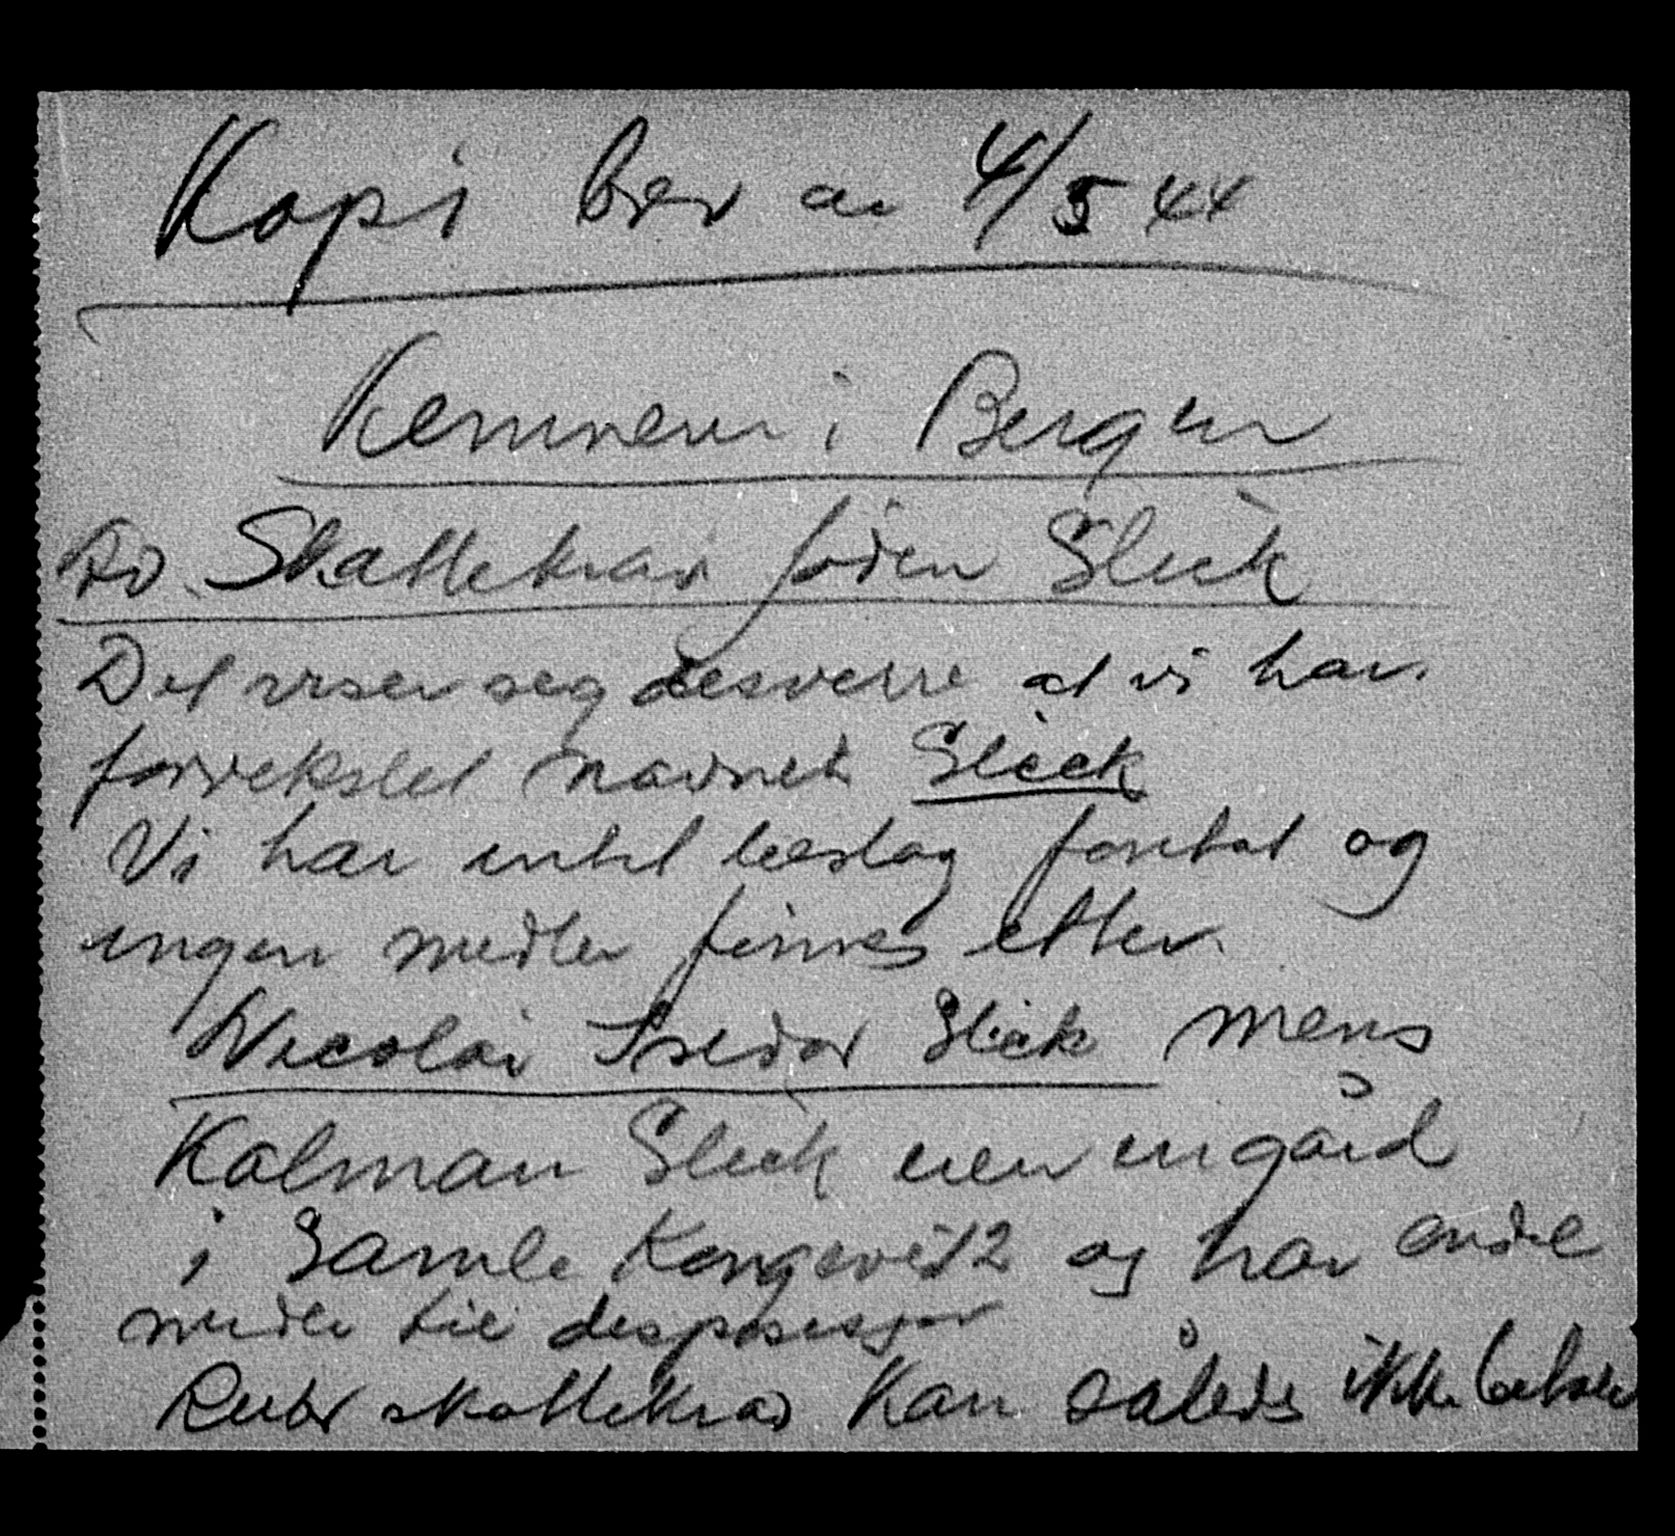 Kopi brev av 4/5 44
Kemneren i Bergen
Ad. Skattekrav jøden Slick
Det viser seg desverre at vi har
forvekslet navnet Slick
Vi har intet beslag foretat og
ingen midler finnes etter
Nicolai Isidor Slick mens
Kalman Slick eier en gård
i Gamle Kongevei 12 og har endel
midler til desposisjon
skattekrav kan således ikke